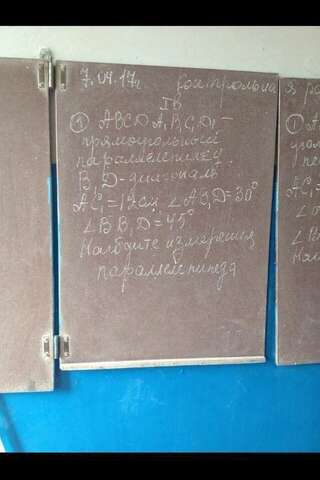 7.04.17г. Контрольна я р
I В
① ABCD A₁B₁C₁D₁ –
прямоугольный
параллелепипед.
B₁D – диагональ
AC₁ = 12см ∠AC₁D = 30°
∠BB₁D = 45°
Найдите измерения
параллелепипеда
①
угол
AC₁ =
∠